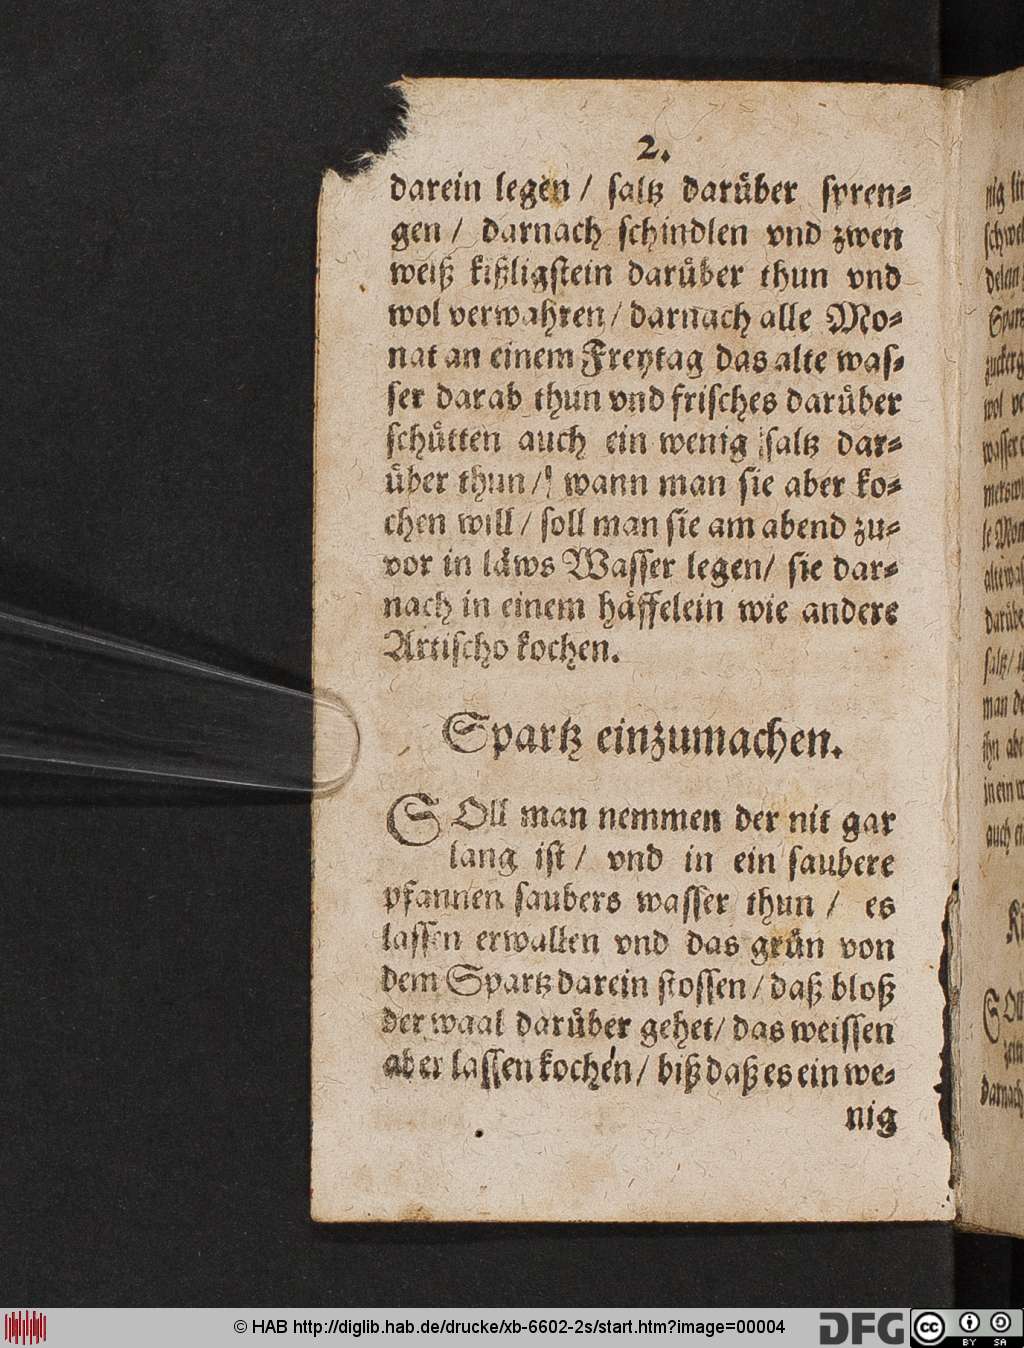 2.
darein legen / saltz darüber spren-
gen / darnach schindlen vnd zwen
weiß kißligstein darüber thun vnd
wol verwahren / darnach alle Mo-
nat an einem Freytag das alte was-
ser darab thun vnd frisches darüber
schütten auch ein wenig saltz dar-
über thun / wann man sie aber ko-
chen will / soll man sie am abend zu-
vor in läws Wasser legen / sie dar-
nach in einem häffelein wie andere
Artischo kochen.
Spartz einzumachen.
SOll man nemmen der nit gar
lang ist / vnd in ein saubere
pfannen saubers wasser thun / es
lassen erwallen vnd das grün von
dem Spartz darein stossen / daß bloß
der waal darüber gehet / das weissen
aber lassen kochen / biß daß es ein we-
nig
© HAB http://diglib.hab.de/drucke/xb-6602-2s/start.htm?image=00004
DFG
cc BY SA